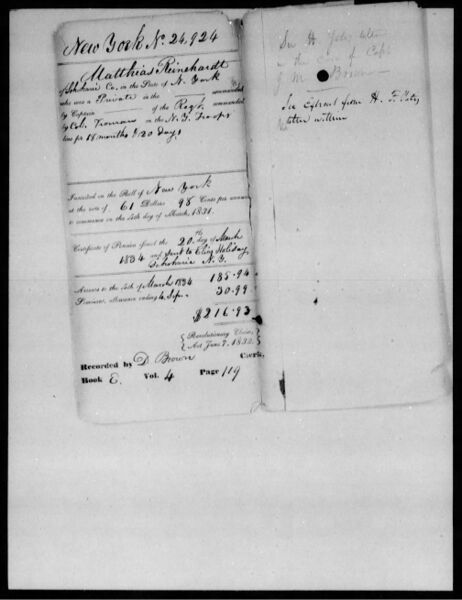 New York No. 24,924
Matthias Reinehardt
of Schoharie Co. in the State of N. York
who was a Private in the commanded
by Captain of the Regt. commanded
by Col. Vroman in the N.Y. Troops
line for 18 months & 20 days
Inscribed on the Roll of New York
at the rate of 61 Dollars 98 Cents per annum
to commence on the 4th day of March, 1831.
Certificate of Pension issued the 20th day of March
1834 and sent to Eliz Holiday
Schoharie N.Y.
Arrears to the 4th of March 1834 185.94
Semi-anl. allowance ending 4 Sep. 30.99
$216.93
Revolutionary Claim,
Act June 7, 1832.
Recorded by D Brown Clerk,
Book E. Vol. 4 Page 119
See H. Yates letter
in the case of Capt
J M Brown
See extract from H. F. Yates
letter within